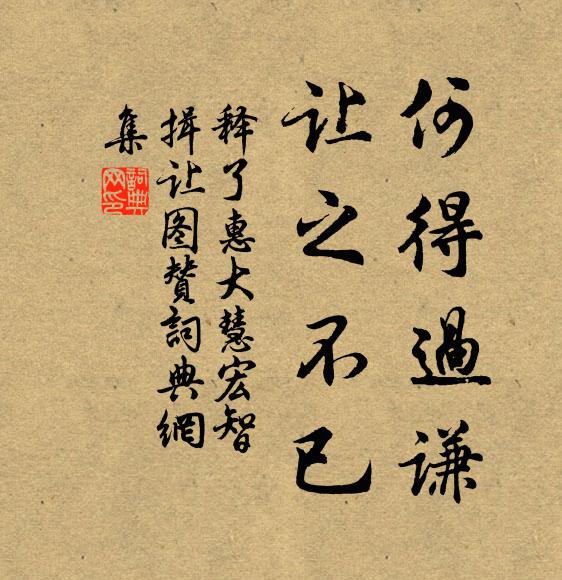 何得過谦
让之不已
释了惠大慧宏智
揖让图赞詞典網
集
詞典
网印